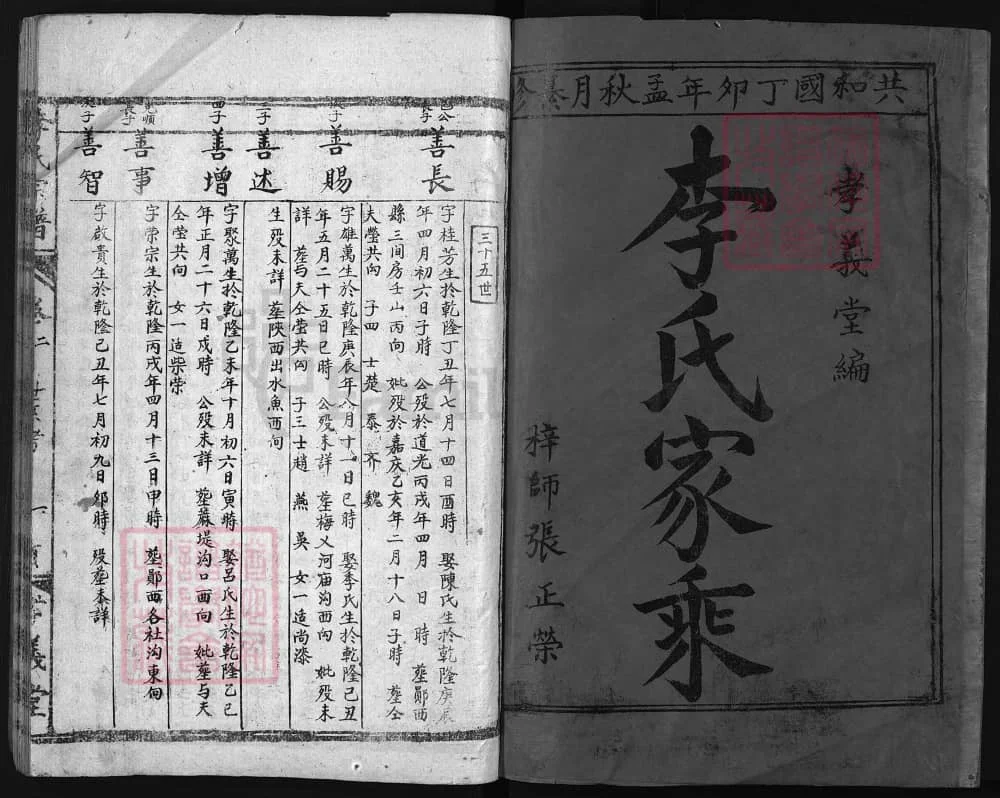 共和國丁卯年孟秋月纂修
孝義堂編
李氏家乘
梓師張正榮
三十五世
長子
善長
字桂芳生於乾隆丁丑年七月十四日酉時 娶陳氏生於乾隆庚辰
年四月初六日子時 公歿於道光丙戌年四月 日 時 塟鄖西
縣三间房壬山丙向 妣歿於嘉庆乙亥年二月十八日子時 塟仝
夫塋共向 子四 士楚 泰 齐 魏
次子
善賜
字雄萬生於乾隆庚辰年八月十一日巳時 娶季氏生於乾隆己丑
年五月二十五日巳時 公歿未詳 塟梅乂河庙沟西向 妣歿未
詳 塟与夫仝塋共向 子三士趙 燕 吳 女一适尚漆
三子
善述
生歿未詳 塟陝西出水魚西向
四子
善增
字聚萬生於乾隆乙未年十月初六日寅時 娶呂氏生於乾隆乙巳
年正月二十六日戍時 公歿未詳 塟蔴堤沟口西向 妣塟与夫
仝塋共向 女一适柴荣
長子
善事
字荣宗生於乾隆丙戌年四月十三日申時 塟鄖西各社沟東向
次子
善智
字啟貴生於乾隆己丑年七月初九日卯時 歿塟未詳
李氏宗譜
卷二
孝義堂